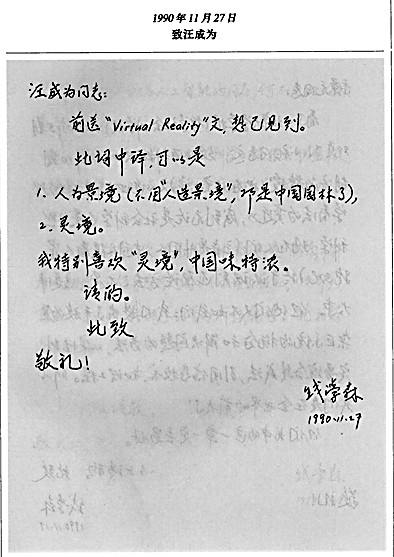 1990年11月27日
致汪成为
汪成为同志:
前送“Virtual Reality”文,想已见到。
此词中译,可以是
1. 人为景境(不用“人造景境”,那是中国园林了),
2. 灵境。
我特别喜欢“灵境”,中国味特浓。
请酌。
此致
敬礼!
钱学森
1990.11.27